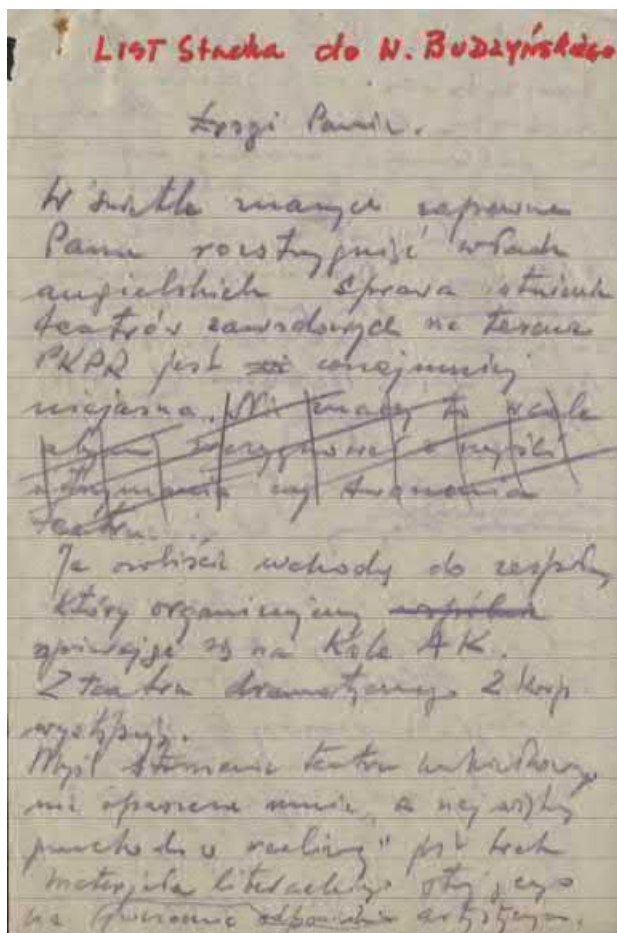 LIST Stacha do W. BUDZYŃSKIEGO
Drogi Panie.
W świetle znanych zapewne
Panu rozstrzygnięć władz
angielskich sprawa istnienia
teatrów zawodowych na terenie
PKPR jest conajmniej
niejasna. Nie znaczy to wcale
abym zrezygnował z myśli
utrzymania czy tworzenia
teatru.
Ja osobiście wchodzę do zespołu
który organizujemy wspólnie
opierając się na Kole AK.
Z teatru dramatycznego 2 Korp
występuję.
Myśl stworzenia teatru
nie opuszcza mnie, a największą
przeszkodą w realiz" jest brak
materjału literackiego
na poziomie artystycznym.